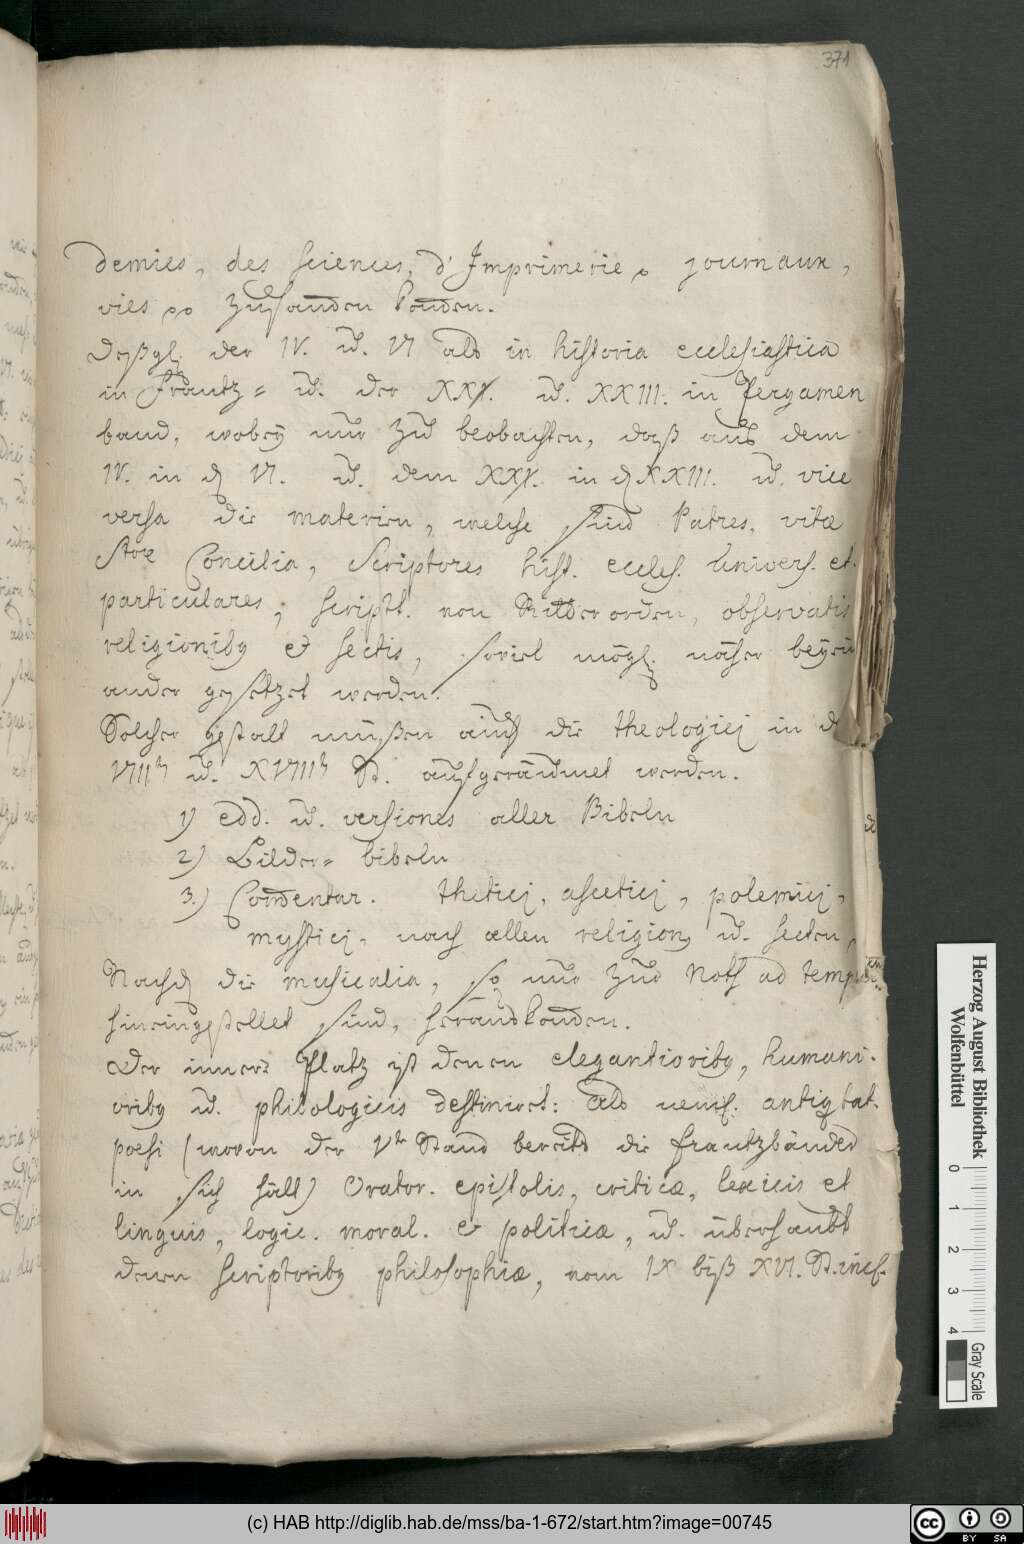 371
demies, des sciences, d'Imprimerie, journaux,
vies pp zusanden konden.
Deßgl. der IV. u. VI als in historia ecclesiastica
in Frantz= u. der XXI. u. XXIII. in Pergamen
band, wobey nur zu beobachten, daß aus dem
IV. in d VI. u. dem XXI. in d XXIII. u. vice
versa die materien, welche sind Patres, vitæ
Stor Concilia, Scriptores hist. eccles. Univers. et
particulares, script. von Ritter orden, observatis
religionibg et sectis, soviel mögl. näher beyein
ander gesetzet werden.
Solcher gestalt müßen auch die theologici in d
VIIIt u. XVIIIt St. aufgeräumet werden.
1) edd. u. versiones aller Bibeln
2) Bilder= bibeln
3.) Comentar. thetici, ascetici, polemici,
mystici, nach allen religion u. secten,
Nachd die musicalia, so nur zur Noth ad temp
hineingestellet sind, heraus konden.
Der innere Platz ist denen elegantioribg, humani-
oribg u. philologicis destiniret: als numis. antiqtat.
poesi (wovon der Vte Stand bereits die frantzbänder
in sich hält) Orator. epistolis, criticæ, lexicis et
linguis, logic. moral. et politicæ, u. überhaubt
denen scriptoribg philosophiæ, vom IX biß XVI. St. incl.
Herzog August Bibliothek
Wolfenbüttel
0 1 2 3 4
Gray Scale
(c) HAB http://diglib.hab.de/mss/ba-1-672/start.htm?image=00745
cc BY SA